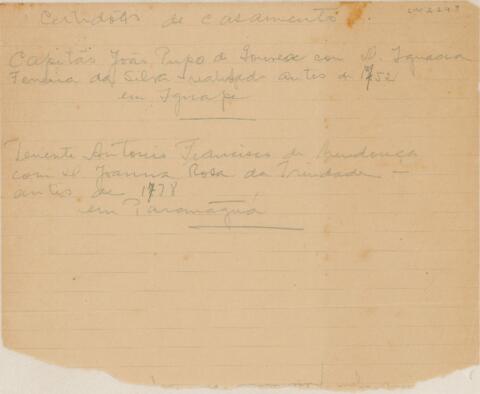 Certidões de casamento.
Capitão João Pupo de Gouvea com D. Ignacia
Ferreira da Silva - realisado antes de 1752
em Iguape
Tenente Antonio Francisco de Mendonça
com D. Joanna Rosa da Trindade -
antes de 1778
em Paranaguá